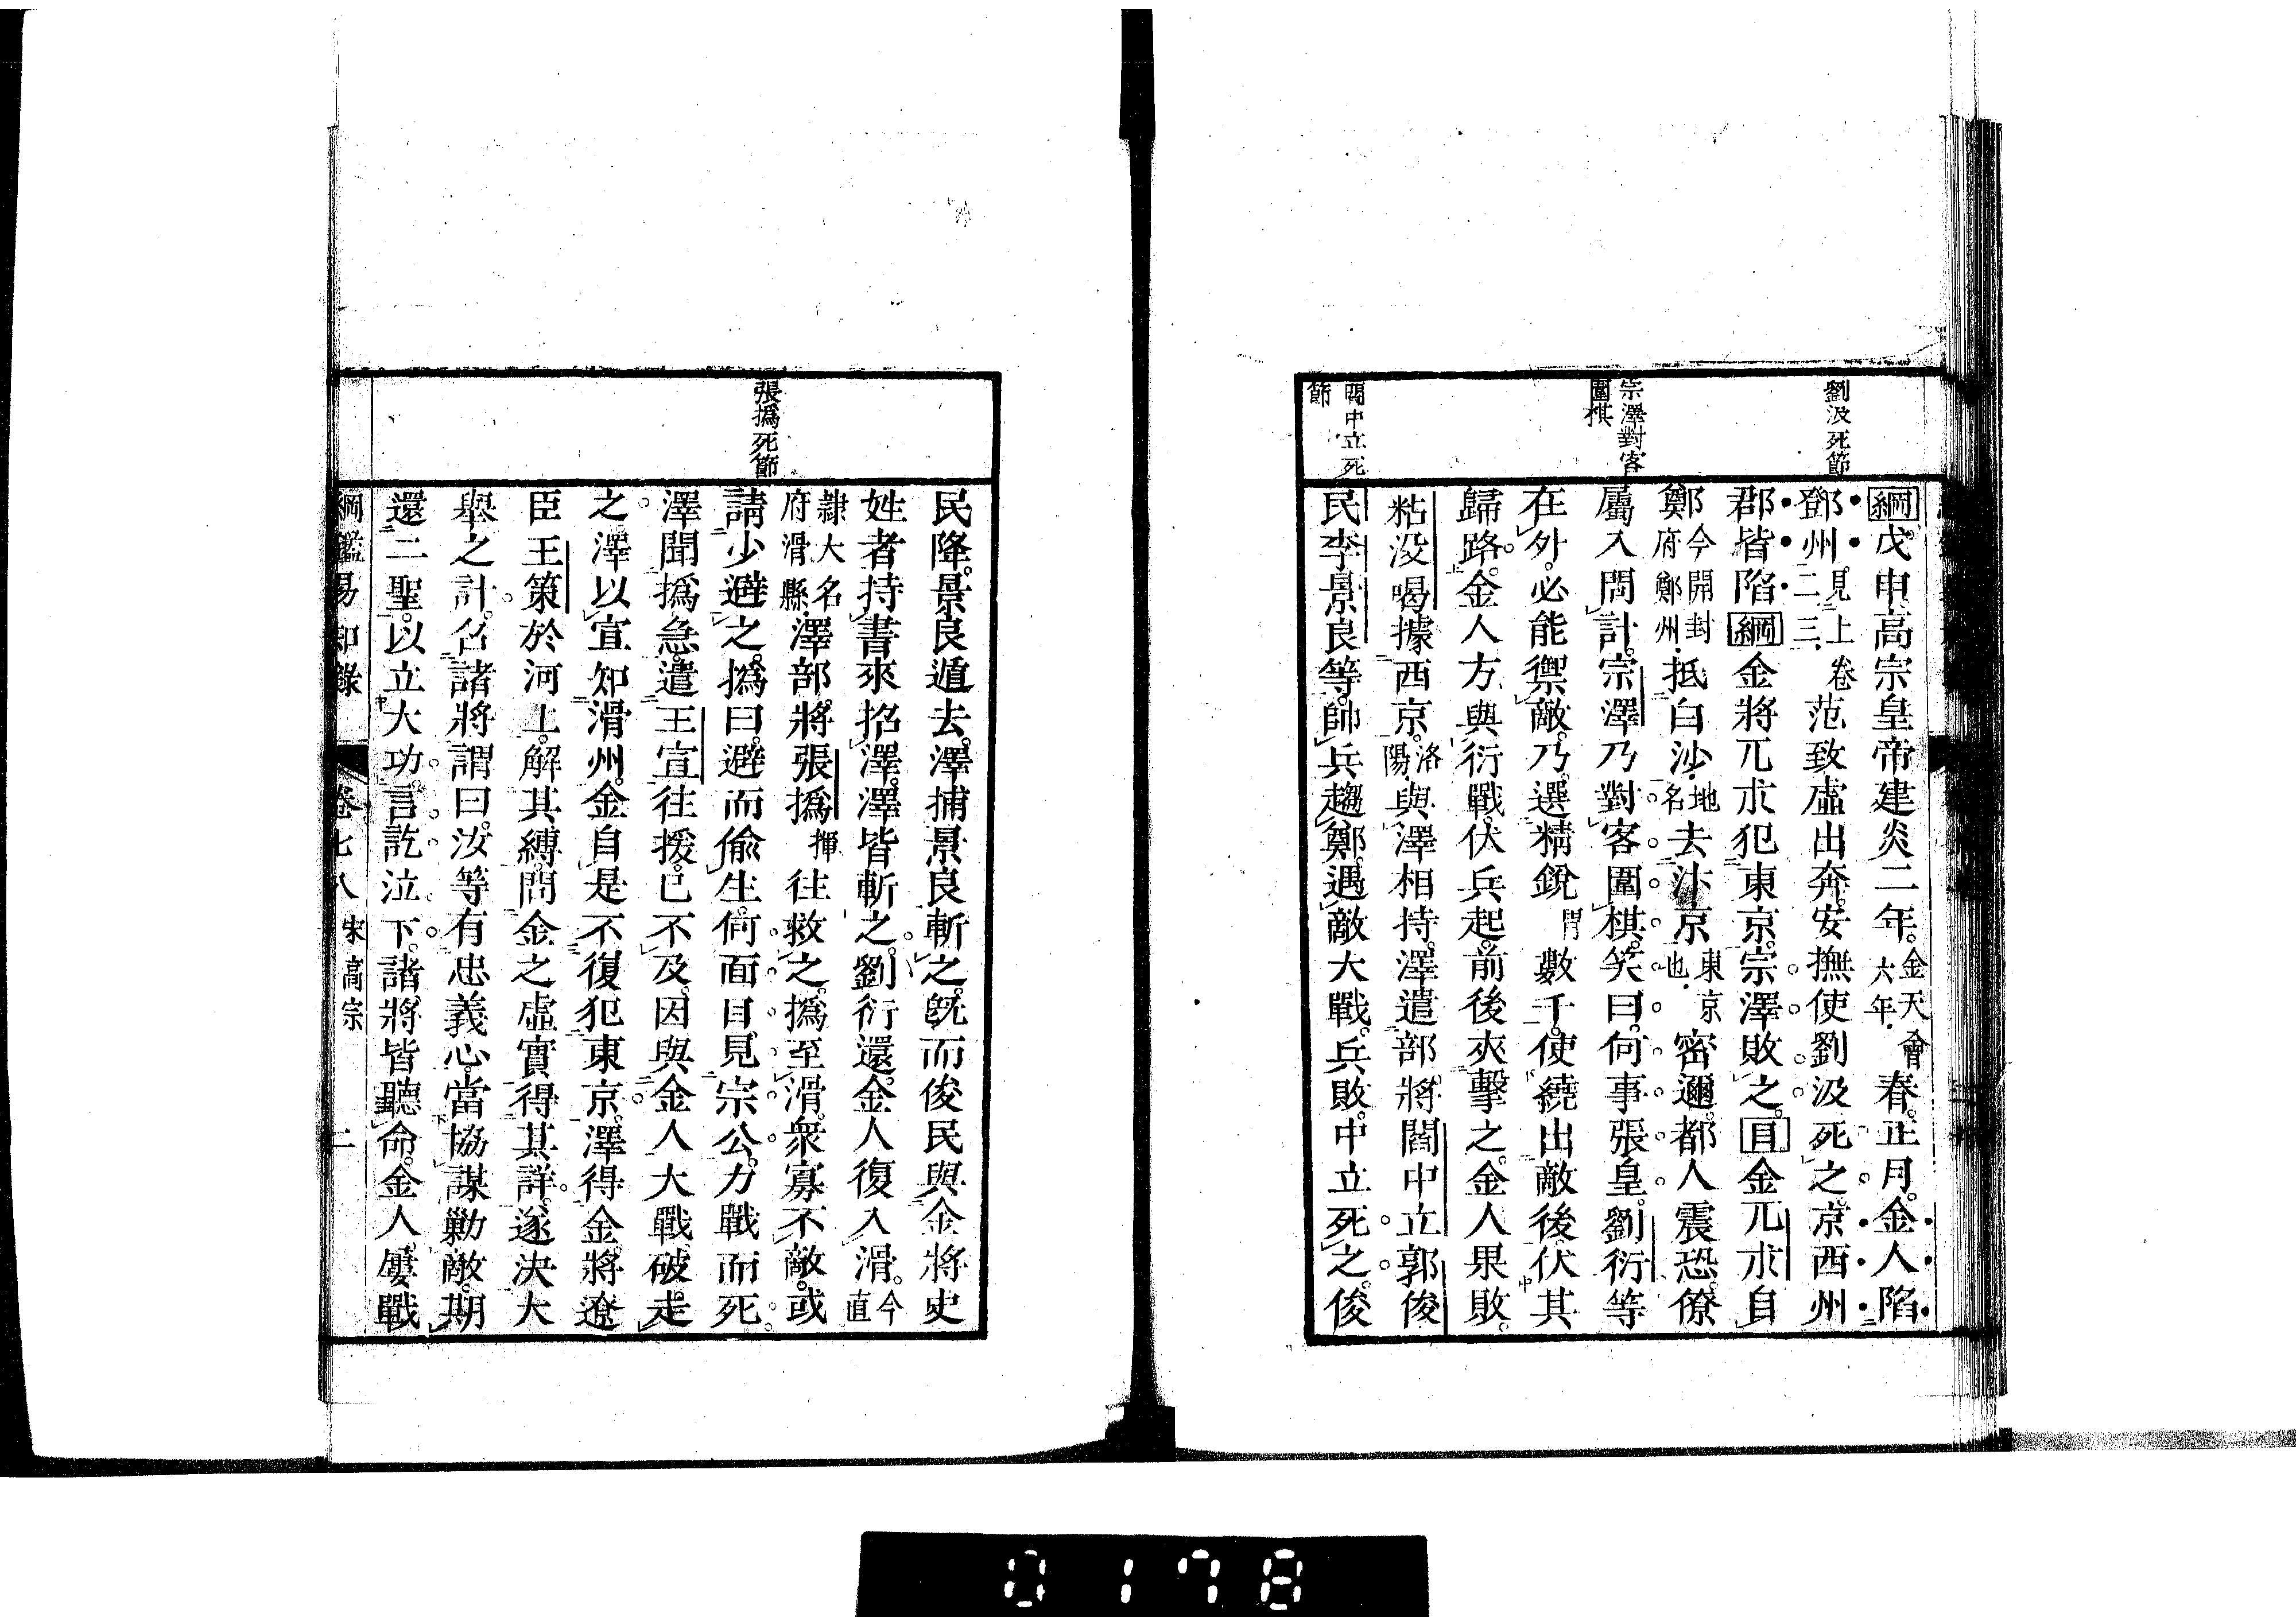 劉汲死節
宗澤對客
圍棋
閻中立死
節
綱戊申高宗皇帝建炎二年。金天會六年.春。正月。金人陷
鄧州。見上卷二三.范致虛出奔。安撫使劉汲死之。京西州
郡皆陷綱金將兀朮犯東京。宗澤敗之。目金兀朮自
鄭今開封府鄭州.抵白沙.地名去汴京東京也.密邇。都人震恐。僚
屬入問計。宗澤乃對客圍棋。笑曰。何事張皇。劉衍等
在外。必能禦敵。乃選精銳謂數千。使繞出敵後。伏其
歸路。金人方與衍戰。伏兵起。前後夾擊之。金人果敗。
粘沒喝據西京。洛陽.與澤相持。澤遣部將閻中立郭俊
民李景良等。帥兵趨鄭。遇敵大戰。兵敗。中立死之。俊
張撝死節
民降。景良遁去。澤捕景良斬之。旣而俊民與金將史
姓者持書來招澤。澤皆斬之。劉衍還。金人復入滑。今直
隸大名府滑縣.澤部將張撝揮往救之。撝至滑。衆寡不敵。或
請少避之。撝曰。避而偷生。何面目見宗公。力戰而死。
澤聞撝急。遣王宣往援。已不及。因與金人大戰。破走
之。澤以宣知滑州。金自是不復犯東京。澤得金將遼
臣王策於河上。解其縛。問金之虛實。得其詳。遂決大
舉之計。召諸將謂曰。汝等有忠義心。當協謀勦敵。期
還二聖。以立大功。言訖泣下。諸將皆聽命。金人屢戰
綱鑑易知錄 卷七八宋高宗 二
0178